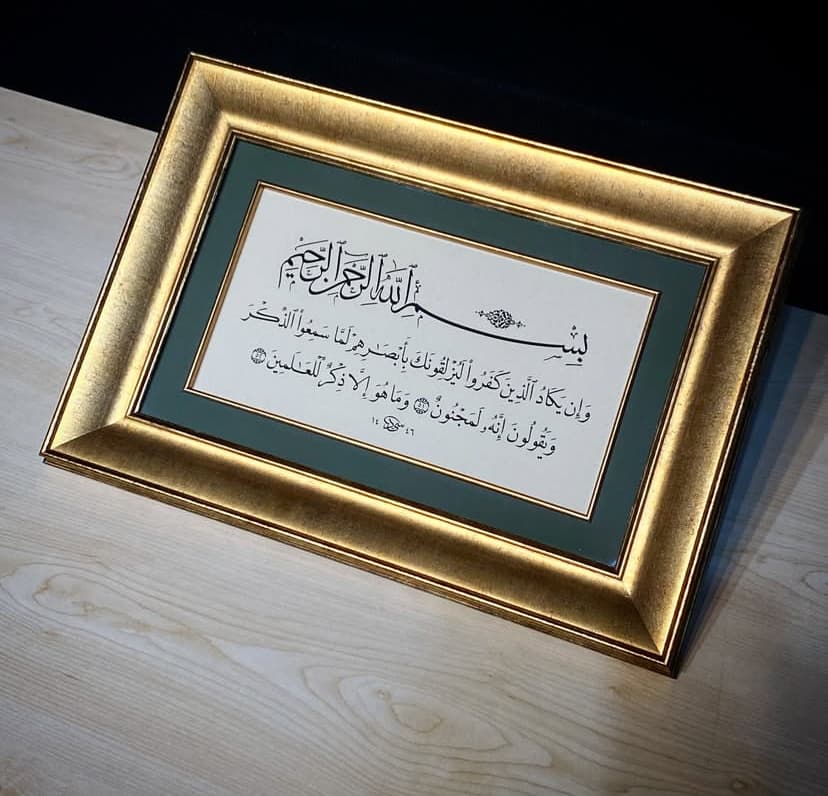 بِسْمِ ٱللَّهِ ٱلرَّحْمَٰنِ ٱلرَّحِيمِ
وَإِن يَكَادُ ٱلَّذِينَ كَفَرُوا۟ لَيُزْلِقُونَكَ بِأَبْصَٰرِهِمْ لَمَّا سَمِعُوا۟ ٱلذِّكْرَ
وَيَقُولُونَ إِنَّهُۥ لَمَجْنُونٌ ۝٥١ وَمَا هُوَ إِلَّا ذِكْرٌ لِّلْعَٰلَمِينَ ۝٥٢
١٤٤٦